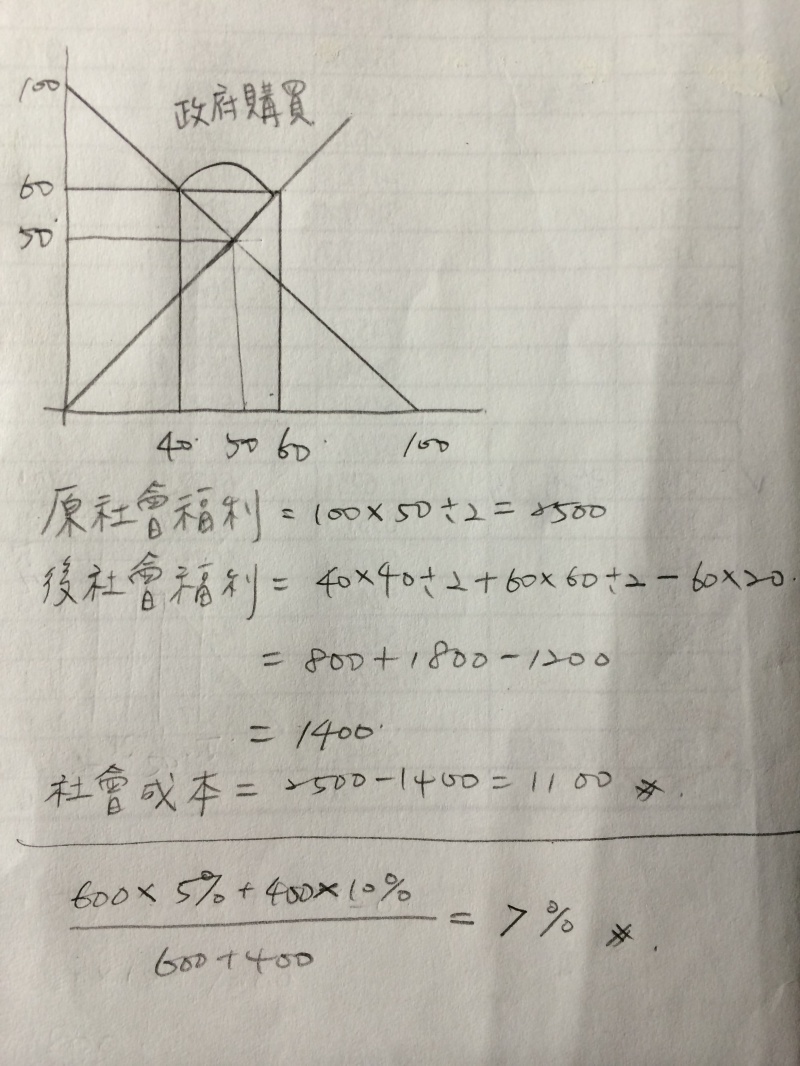 100
政府購買
60
50
40 50 60 100
原社會福利 = 100×50÷2 = 2500
後社會福利 = 40×40÷2+60×60÷2-60×20
= 800+1800-1200
= 1400
社會成本 = 2500-1400 = 1100 ※.
600×5%+400×10%
600+400
= 7% ※.